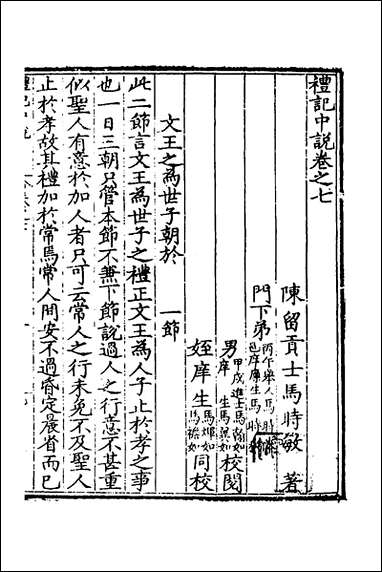 禮記中說卷之七
陳留貢士馬時敏 著
門下弟 丙午舉人馬時
邑庠廩生馬時
男 甲戌進士馬 如
庠 生馬 如 校閱
姪庠生 馬 如
馬 如 同校
文王之為世子朝於 一節
此二節言文王為世子之禮正文王為人子止於孝之事
也一日三朝只管本節不兼下節說過人之行意不甚重
似聖人有意於加人者只可云常人之行未免不及聖人
止於孝故其禮加於常焉常人間安不過昏定晨省而已
禮記中說